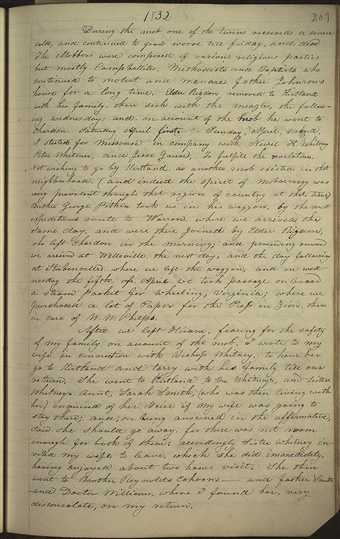 1832 209
During the mob one of the twins received a severe
cold, and continued to grow worse till friday, and died.
The Mobbers were composed of various religious parties,
but mostly Campbellites, Methodists and Baptists who
continued to molest and menace father Johnsons
house for a long time. Elder Rigdon removed to Kirtland
with his family, then sick with the measles, the follow-
ing wednesday, and on account of the mob he went to
Chardon Saturday April first. Sunday, April, second,
I started for Missouri in company with Newel K. Whitney
Peter Whitmer, and Jesse Gause, to fulfil the revelation.
Not wishing to go by Kirtland, as another mob existed in that
neighborhood, (and indeed the spirit of mobocracy was
very prevalent through that region of country at the time)
brother George Pitkin took us in his waggon, by the most
expeditious route to Warren, where we arrived the
same day, and were there joined by Elder Rigdon,
who left Chardon in the morning; and proceeding onward
we arrived at Wellsville the next day, and the day following
at Steubenville where we left the waggon, and on wed-
nesday the fifth, of April we took passage on board
a steam packet for Wheeling, (Virginia,) where we
purchased a lot of Paper for the Press in Zion, then
in care of W. W. Phelps.
After we left Hiram, fearing for the safety
of my family, on account of the mob, I wrote to my
wife, in connection with Bishop Whitney, to have her
go to Kirtland and tarry with his family till our
return. She went to Kirtland, to bro Whitneys, and sister
Whitneys Aunt, Sarah Smith, (who was then living with
her,) enquired of her Niece if my wife was going to
stay there; and, on being answered in the affirmative,
said she should go away, for there was not room
enough for both of them: accordingly sister Whitney in-
vited my wife to leave, which she did immediately,
having enjoyed about two hours visit. She then
went to brother Reynolds Cahoons — and father Smiths
and Doctor Williams, where I found her, very
disconsolate, on my return.